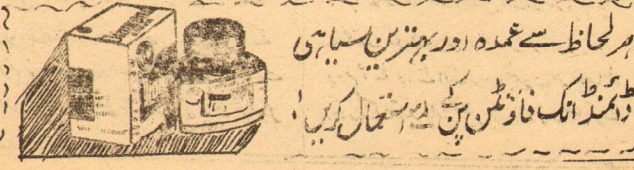 ہر لحاظ سے عمدہ اور بہترین سیاہی
ڈائمنڈ انک فاؤنٹن پن کے لئے استعمال کریں!